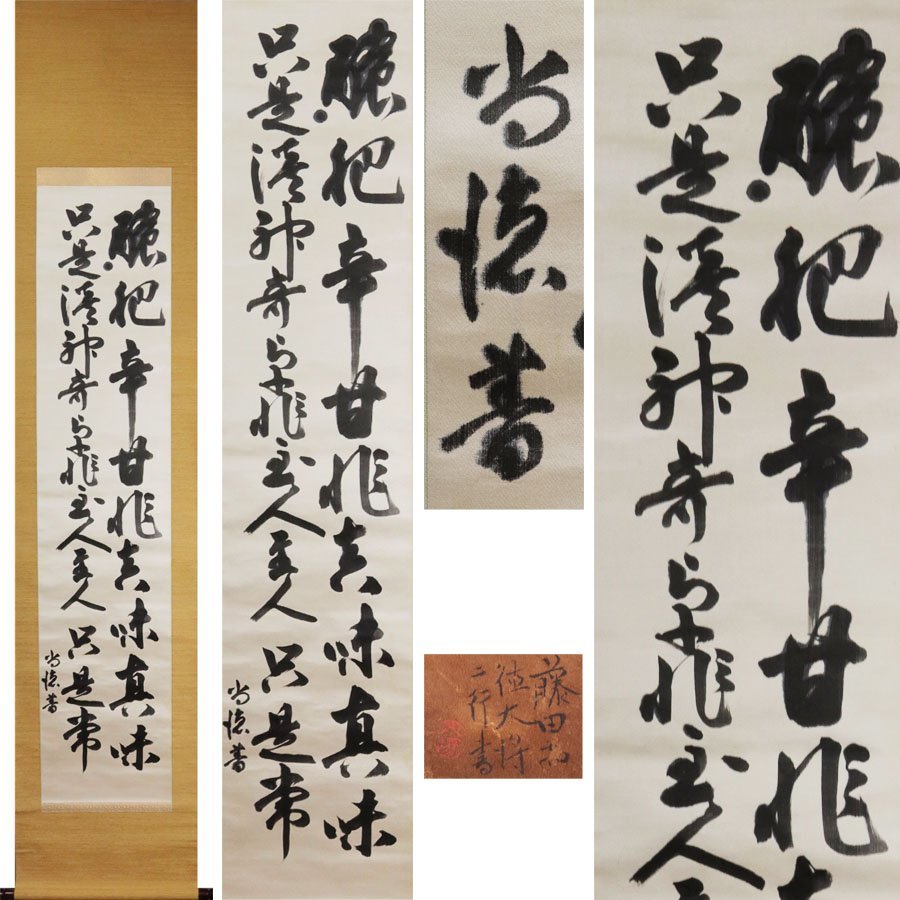 醲肥辛甘非真味真味
只是淡神奇卓異非至人至人只是常
尚徳書
醲肥辛甘非真味真味
只是淡神奇卓異非至人至人只是常
尚徳書
尚徳書
藤田尚
徳大将
二行書
醲肥辛甘非
只是淡神奇卓異非至人